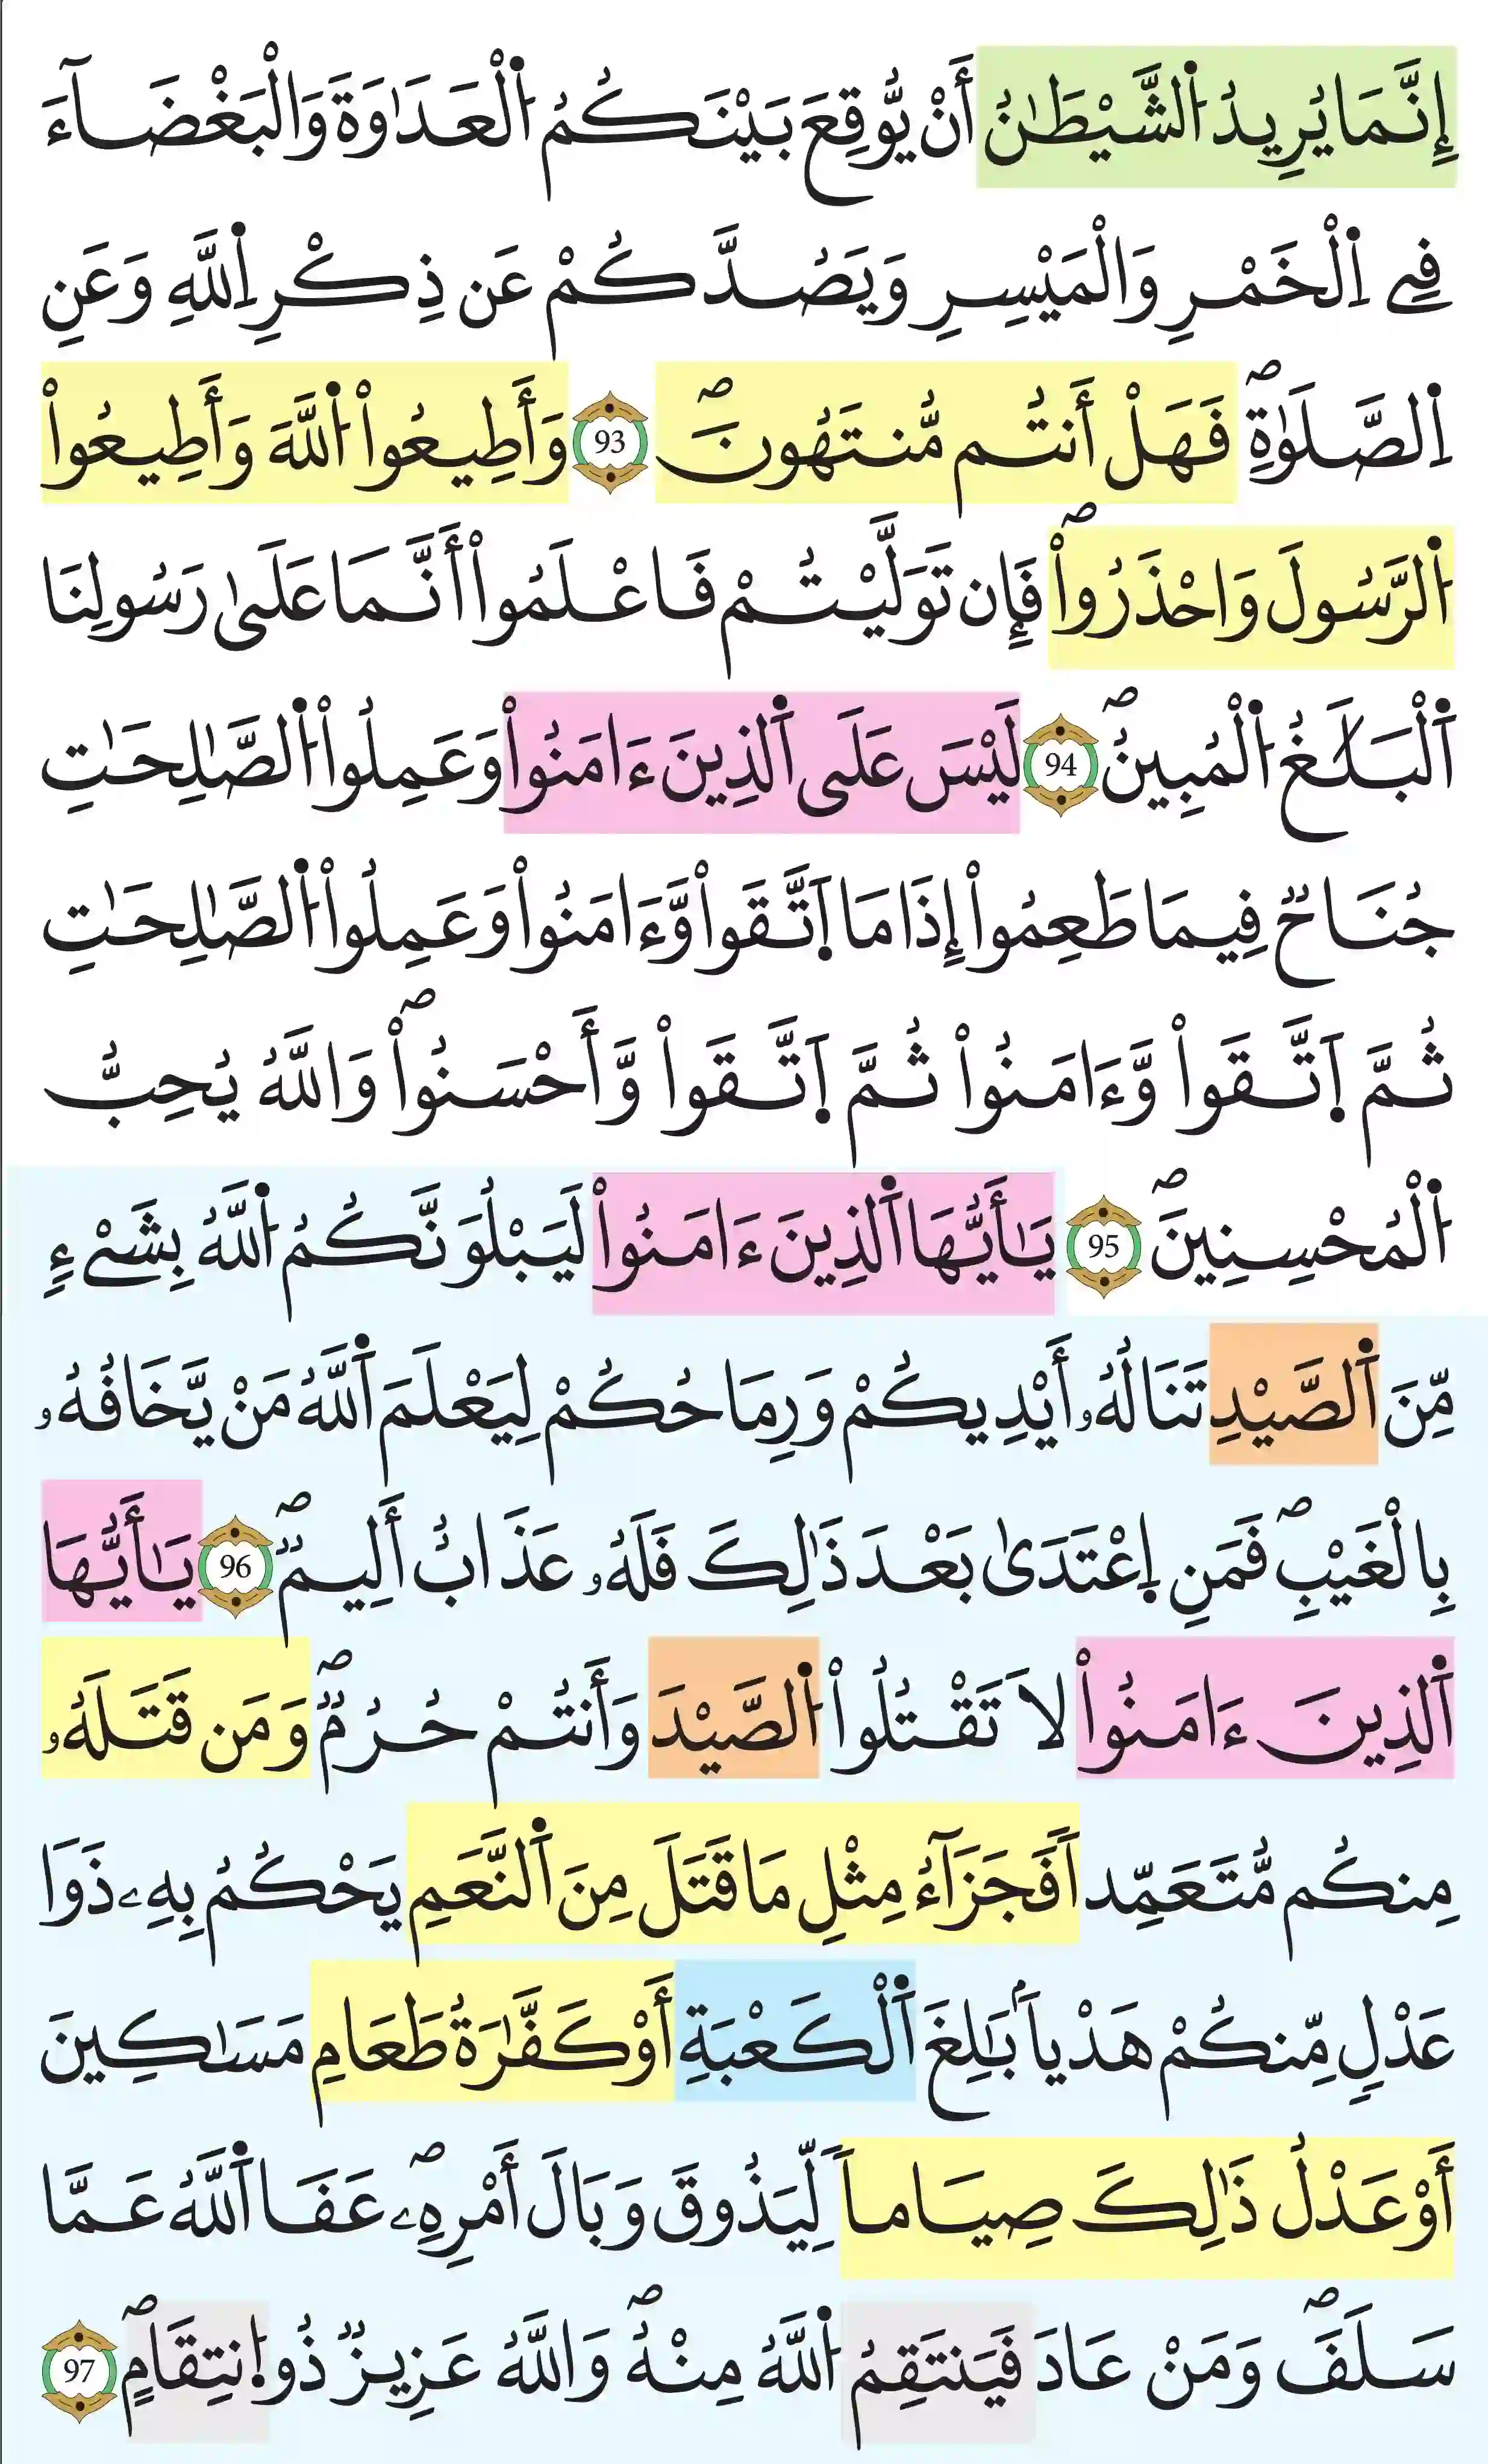 إِنَّمَا يُرِيدُ اُ۬لشَّيْطَٰنُ أَنْ يُّوقِعَ بَيْنَكُمُ اُ۬لْعَدَٰوَةَ وَالْبَغْضَآءَ
فِے اِ۬لْخَمْرِ وَالْمَيْسِرِ وَيَصُدَّكُمْ عَن ذِكْرِ اِ۬للَّهِ وَعَنِ
اِ۬لصَّلَوٰةِۖ فَهَلْ أَنتُم مُّنتَهُونَۖ 93 وَأَطِيعُواْ اُ۬للَّهَ وَأَطِيعُواْ
اُ۬لرَّسُولَ وَاحْذَرُواْۖ فَإِن تَوَلَّيْتُمْ فَاعْلَمُواْ أَنَّمَا عَلَىٰ رَسُولِنَا
اَ۬لْبَلَٰغُ اُ۬لْمُبِينُۖ 94 لَيْسَ عَلَى اَ۬لذِينَ ءَامَنُواْ وَعَمِلُواْ اُ۬لصَّٰلِحَٰتِ
جُنَاحٞ فِيمَا طَعِمُواْ إِذَا مَا اَ۪تَّقَواْ وَّءَامَنُواْ وَعَمِلُواْ اُ۬لصَّٰلِحَٰتِ
ثُمَّ اَ۪تَّقَواْ وَّءَامَنُواْ ثُمَّ اَ۪تَّقَواْ وَّأَحْسَنُواْۖ وَاللَّهُ يُحِبُّ
اُ۬لْمُحْسِنِينَۖ 95 يَٰأَيُّهَا اَ۬لذِينَ ءَامَنُواْ لَيَبْلُوَنَّكُمُ اُ۬للَّهُ بِشَےْءٖ
مِّنَ اَ۬لصَّيْدِ تَنَالُهُۥ أَيْدِيكُمْ وَرِمَاحُكُمْ لِيَعْلَمَ اَ۬للَّهُ مَنْ يَّخَافُهُۥ
بِالْغَيْبِۖ فَمَنِ اِ۪عْتَدَىٰ بَعْدَ ذَٰلِكَ فَلَهُۥ عَذَابٌ أَلِيمٞۖ 96 يَٰأَيُّهَا
اَ۬لذِينَ ءَامَنُواْ لَا تَقْتُلُواْ اُ۬لصَّيْدَ وَأَنتُمْ حُرُمٞۖ وَمَن قَتَلَهُۥ
مِنكُم مُّتَعَمِّداٗ فَجَزَآءُ مِثْلِ مَا قَتَلَ مِنَ اَ۬لنَّعَمِ يَحْكُمُ بِهِۦ ذَوَا
عَدْلٖ مِّنكُمْ هَدْياَۢ بَٰلِغَ اَ۬لْكَعْبَةِ أَوْ كَفَّٰرَةُ طَعَامِ مَسَٰكِينَ
أَوْ عَدْلُ ذَٰلِكَ صِيَاماٗ لِّيَذُوقَ وَبَالَ أَمْرِهِۦۖ عَفَا اَ۬للَّهُ عَمَّا
سَلَفَۖ وَمَنْ عَادَ فَيَنتَقِمُ اُ۬للَّهُ مِنْهُۖ وَاللَّهُ عَزِيزٞ ذُو اُ۪نتِقَامٍۖ 97